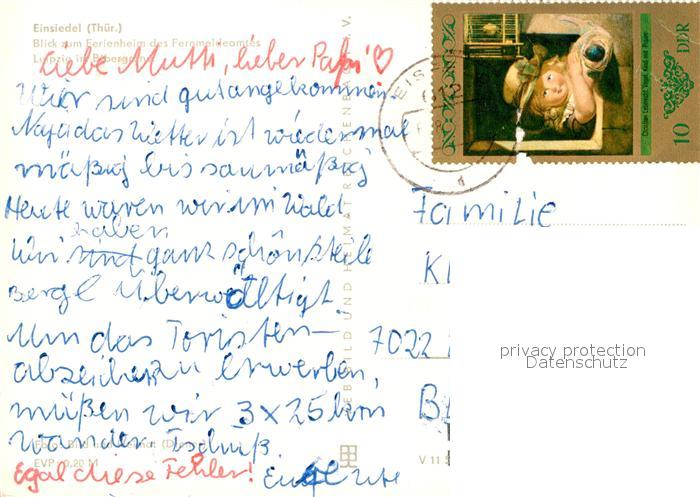 Einsiedel (Thür.)
Blick zum Ferienheim des Fernmeldeamtes
Leipzig im Bibergrund
Liebe Mutti, lieber Papi ♡
Wir sind gutangekommen.
Naja das Wetter ist wiedermal
mäßig bis saumäßig
Heute waren wir im Wald
haben
Wir sind ganz schön steile
Bergl Überwältigt.
Um das Toristen-
abzeichen zu Erwerben,
müßen wir 3x25km
wander. Tschuß.
EVP 0,20 M
Egal diese Fehler! Ute
BILD UND HEIMAT REICHENBACH I. V.
V 11
DDR
10
EIS
Familie
K
7022
B
privacy protection
Datenschutz